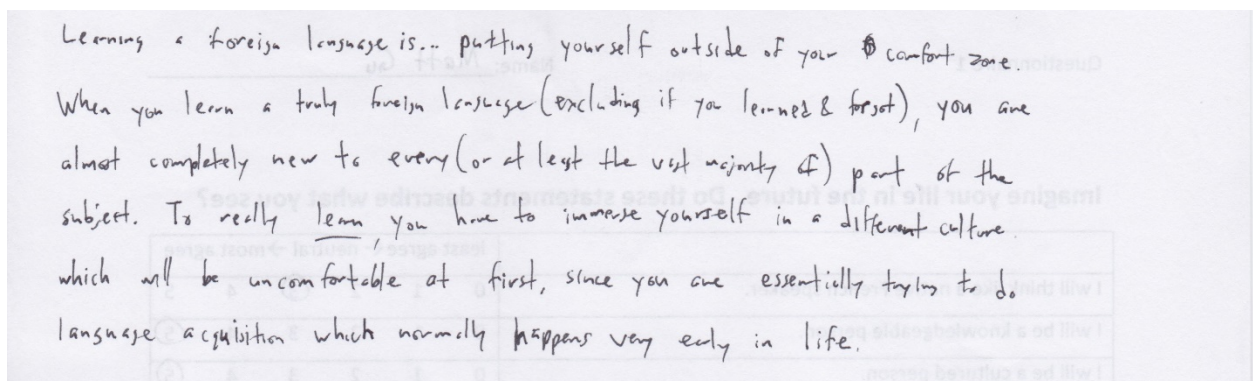 Learning a foreign language is... putting yourself outside of your comfort zone.
When you learn a truly foreign language (excluding if you learned & forgot), you are
almost completely new to every (or at least the vast majority of) part of the
subject. To really learn, you have to immerse yourself in a different culture
which will be uncomfortable at first, since you are essentially trying to do
language acquisition which normally happens very early in life.